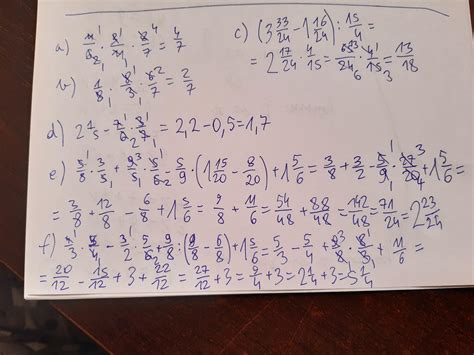 a) 4/6 · 8/4 · 8/7 = 4/7
c) (3 33/24 − 1 16/24) : 15/4 =
= 2 17/24 · 4/15 = 65/24 · 4/15 = 13/18
b) 1/8 · 8/3 · 6/7 = 2/7
d) 2 1/5 − = 2,2 − 0,5 = 1,7
e) 5/8 · 3/5 + · 5/6 − 5/9 · (1 15/20 − 8/20) + 1 5/6 = 3/8 + 3/2 − 5/9 · 27/20 + 1 5/6 =
= 3/8 + 12/8 − 6/8 + 1 5/6 = 9/8 + 11/6 = 54/48 + 88/48 = 142/48 = 71/24 = 2 23/24
f) · 5/4 − 3/2 · 5/6 + 9/8 : (9/8 − 6/8) + 1 5/6 = 5/3 − 5/4 + 9/8 · 8/3 + 11/6 =
= 20/12 − 15/12 + 3 + 22/12 = 27/12 + 3 = 9/4 + 3 = 2 1/4 + 3 = 5 1/4